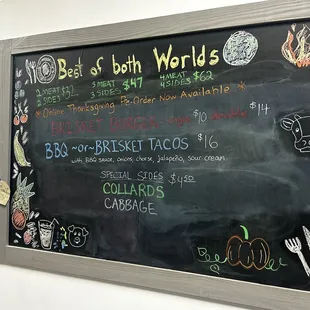 Best of both Worlds
2 MEAT $37 3 MEAT $47 4 MEAT $62
2 SIDES 3 SIDES 4 SIDES
Online Thanksgiving Pre-Order Now Available
$10 $14
BBQ ~or~ BRISKET TACOS $16
with BBQ sauce, onions, cheese, jalapeño, sour cream.
SPECIAL SIDES $4.50
COLLARDS
CABBAGE